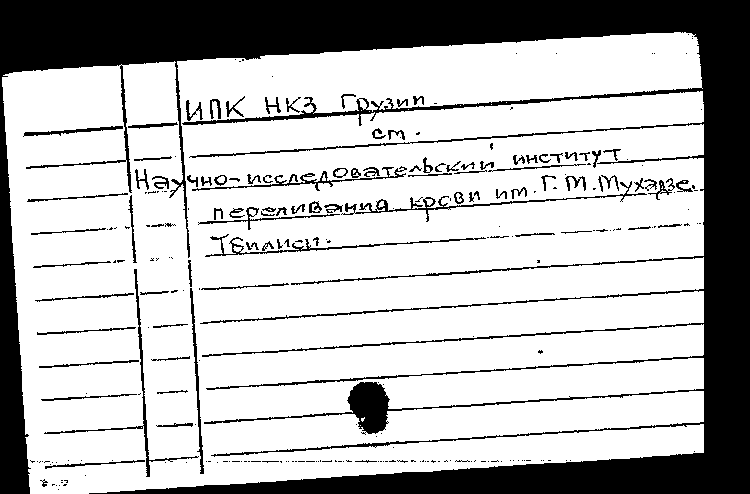 ИПК НКЗ Грузии.
см.
Научно-исследовательский институт
переливания крови им. Г.М.Мухадзе.
Тбилиси.